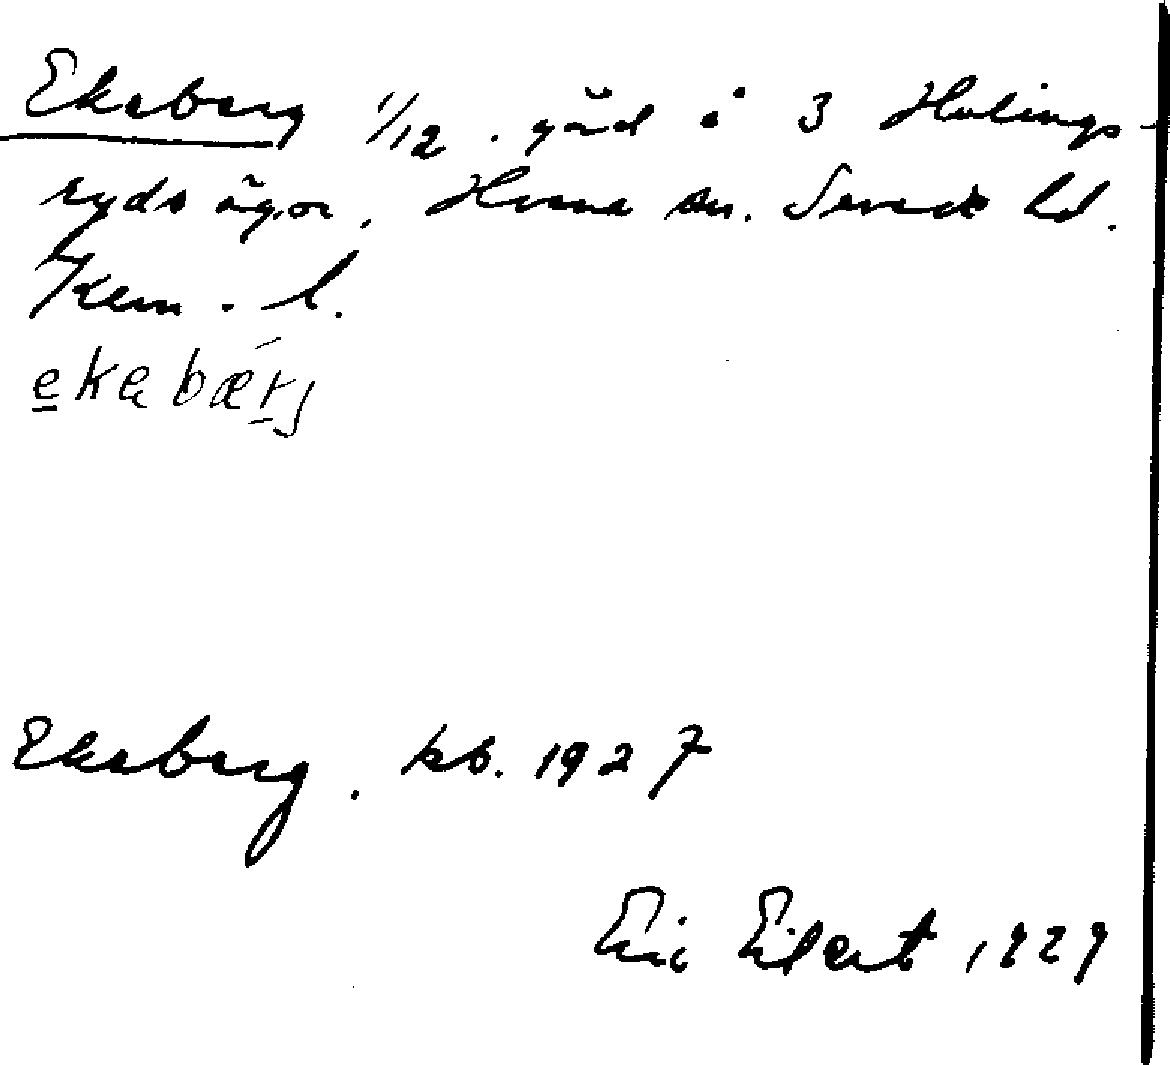 Ekeberg 1/12. gård i 3 Hulings-
ryds ägor, Hvena sn. Sevede hd.
Kem. l.
ekabærj
Ekeberg. kb. 1927
Eric Eilert 1929